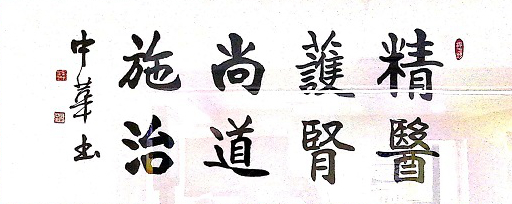 精醫
護腎
尚道
施治
中華书